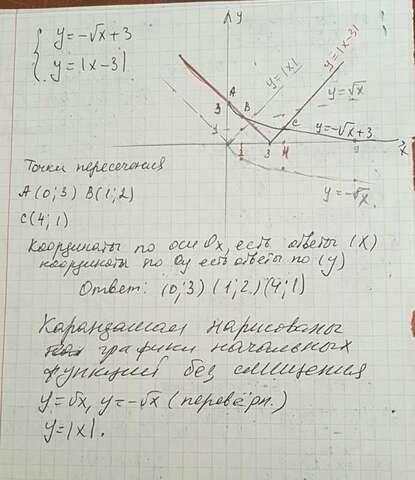 y = -√x + 3
y = |x - 3|
y
A
3
B
1
y = |x|
y = |x-3|
y = √x
C
y = -√x + 3
1
3
4
9
x
y = -√x
Точки пересечения
A (0; 3) B(1; 2)
C(4; 1)
Координаты по оси Ox, есть ответы (x)
координаты по Oy есть ответы по (y)
Ответ: (0; 3) (1; 2) (4; 1)
Карандашам нарисованы
графики начальных
функций без смищения
y = √x, y = -√x (перевёрн.)
y = |x|.